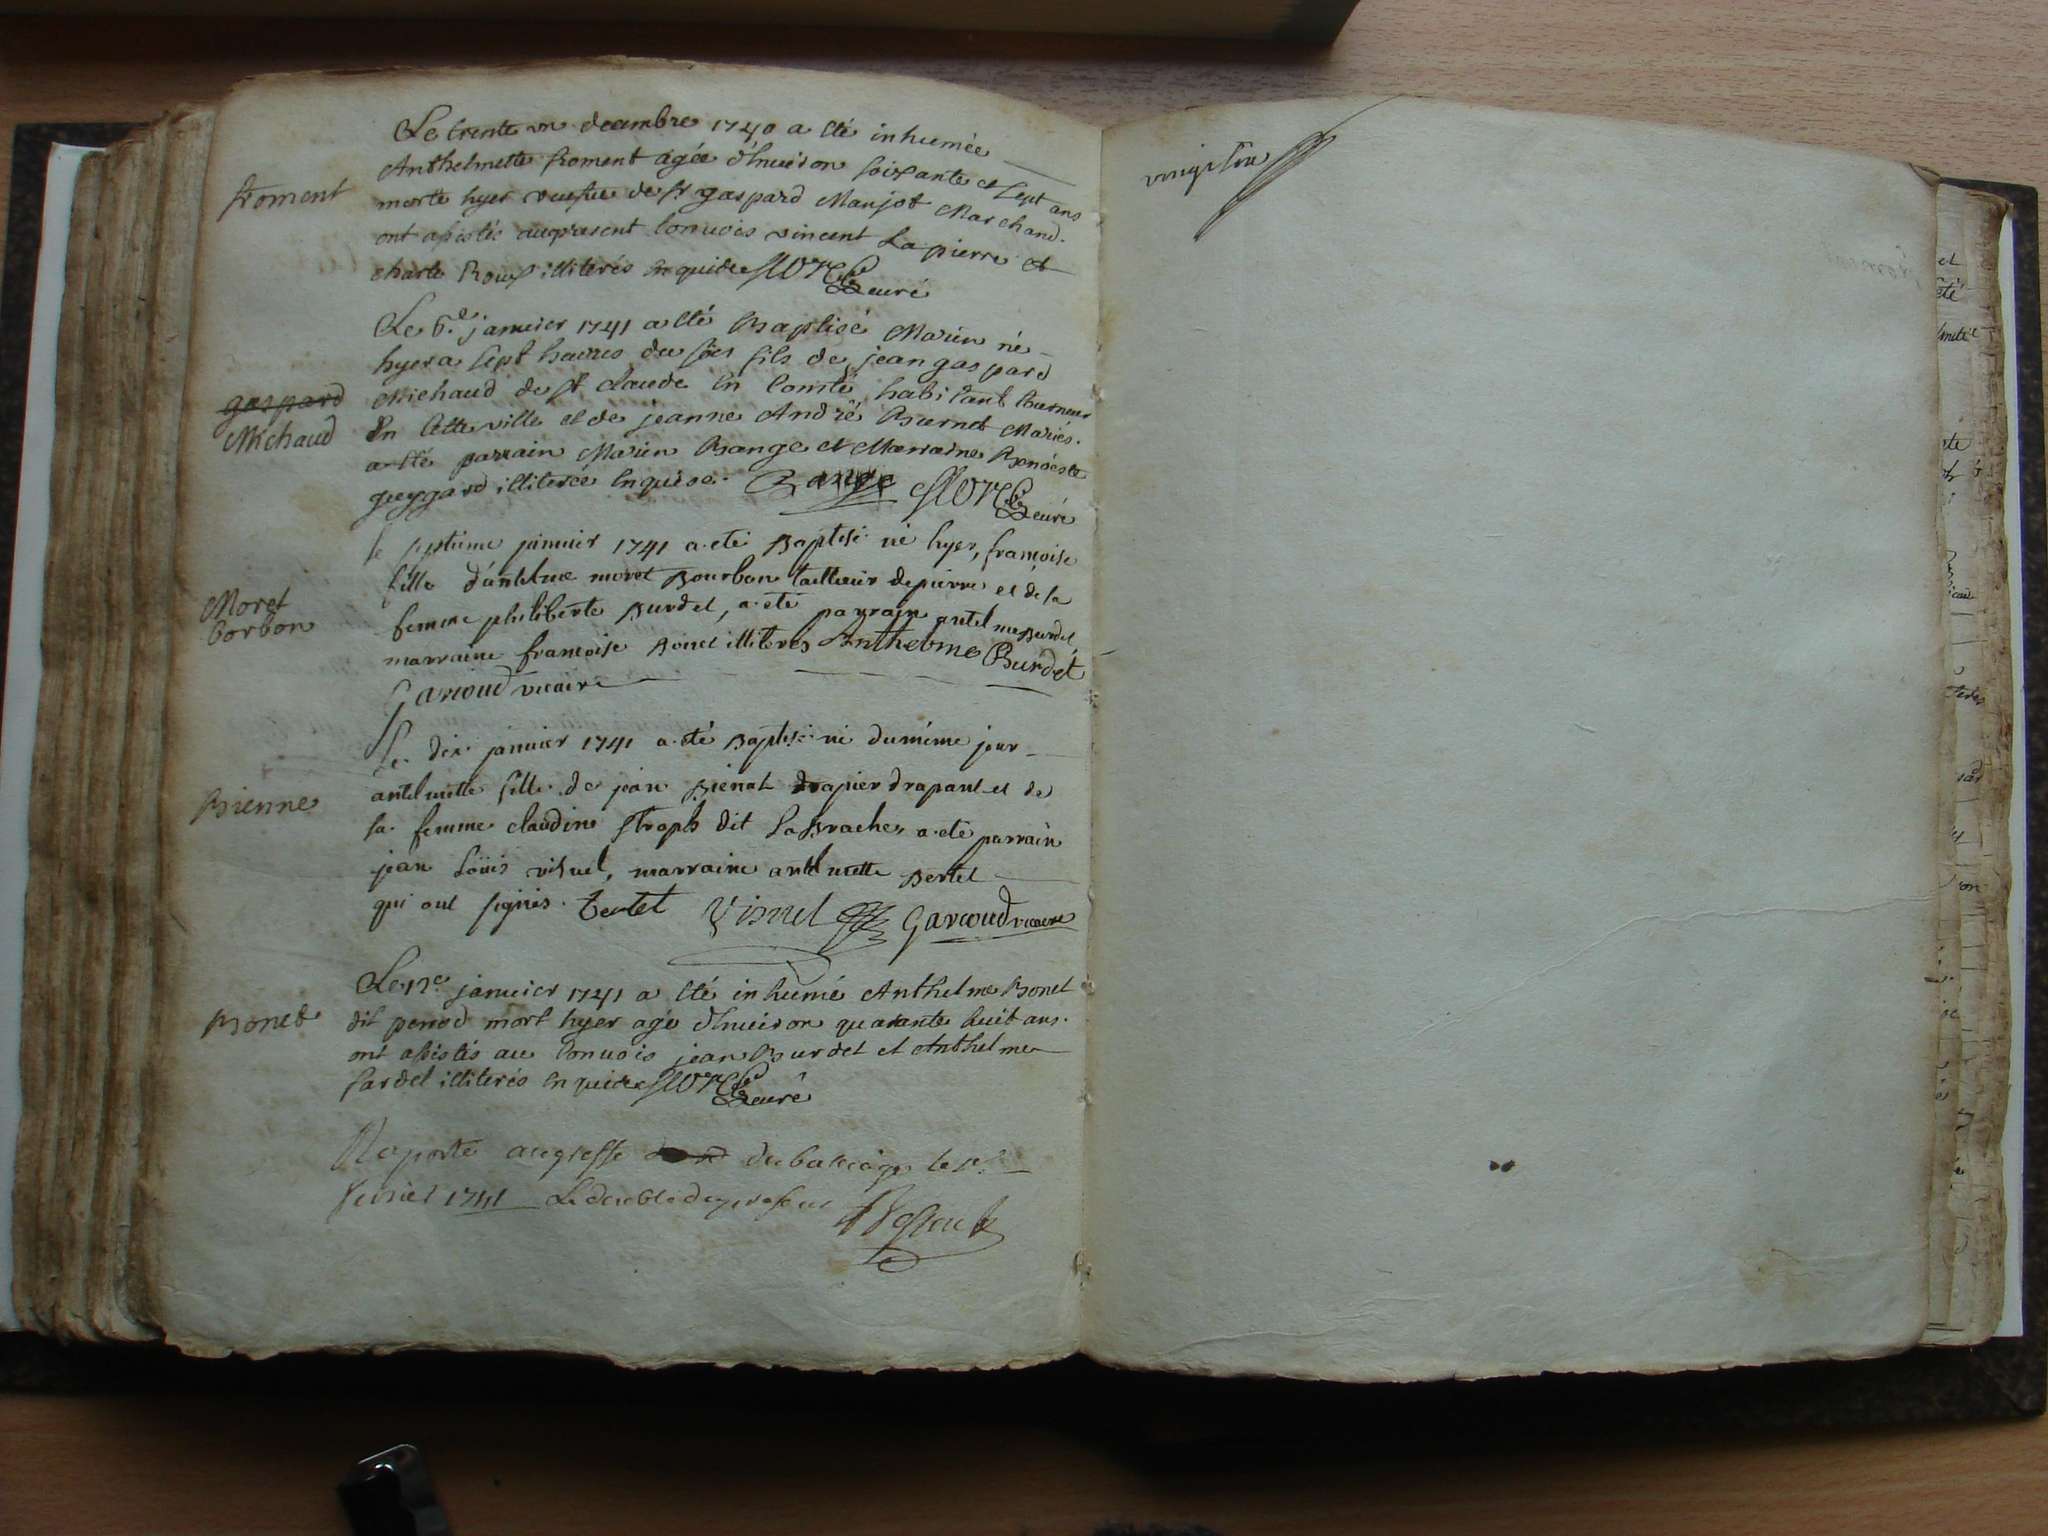 Le trente un decembre 1740 a été inhumée
Anthelmette froment agée d'Enuiron soixante et sept ans
froment
morte hyer veufue de sr gaspard Manjot Marchand.
ont assistés au present Conuois vincent La pierre et
charle Roux illiterés Enquis curé
Le 6e janvier 1741 a été Baptisé Marin né
hyer a sept heures du soir fils de jean gaspard
gaspard
Michaud
Michaud de st Claude En Comté habitant Tourneur
En Cette ville et de jeanne André Burnet Mariés.
a été parrain Marin Bange et Marraine Benoiste
guygard illiterée Enquise. Bange curé
le septieme janvier 1741 a été Baptisé né hyer, françoise
fille d'antelme moret Bourbon tailleur de pierre et de sa
Moret
borbon
femme philiberte Burdet, a été parrain antelme Burdet
marraine francoise Bonet illiterés Anthelme Burdet
Garcoud vicaire
Le dix janvier 1741 a été Baptisé né du même jour
antelmette fille de jean Bienat drapier drapant et de
Bienne
sa femme claudine dit a été parrain
jean Loüis visnel, marraine antelmette Bertet
qui ont signés. tertet Visnel Garcoud vicaire
Le 12e janvier 1741 a été inhumé Anthelme Bonet
Bonet
dit penod mort hyer agé d'Enuiron quarante huit ans.
ont assistés au Conuois jean Burdet et Anthelme
sardet illiterés Enquis curé
Raporté au greffe du baliage le
fevrier 1741 Le double du present